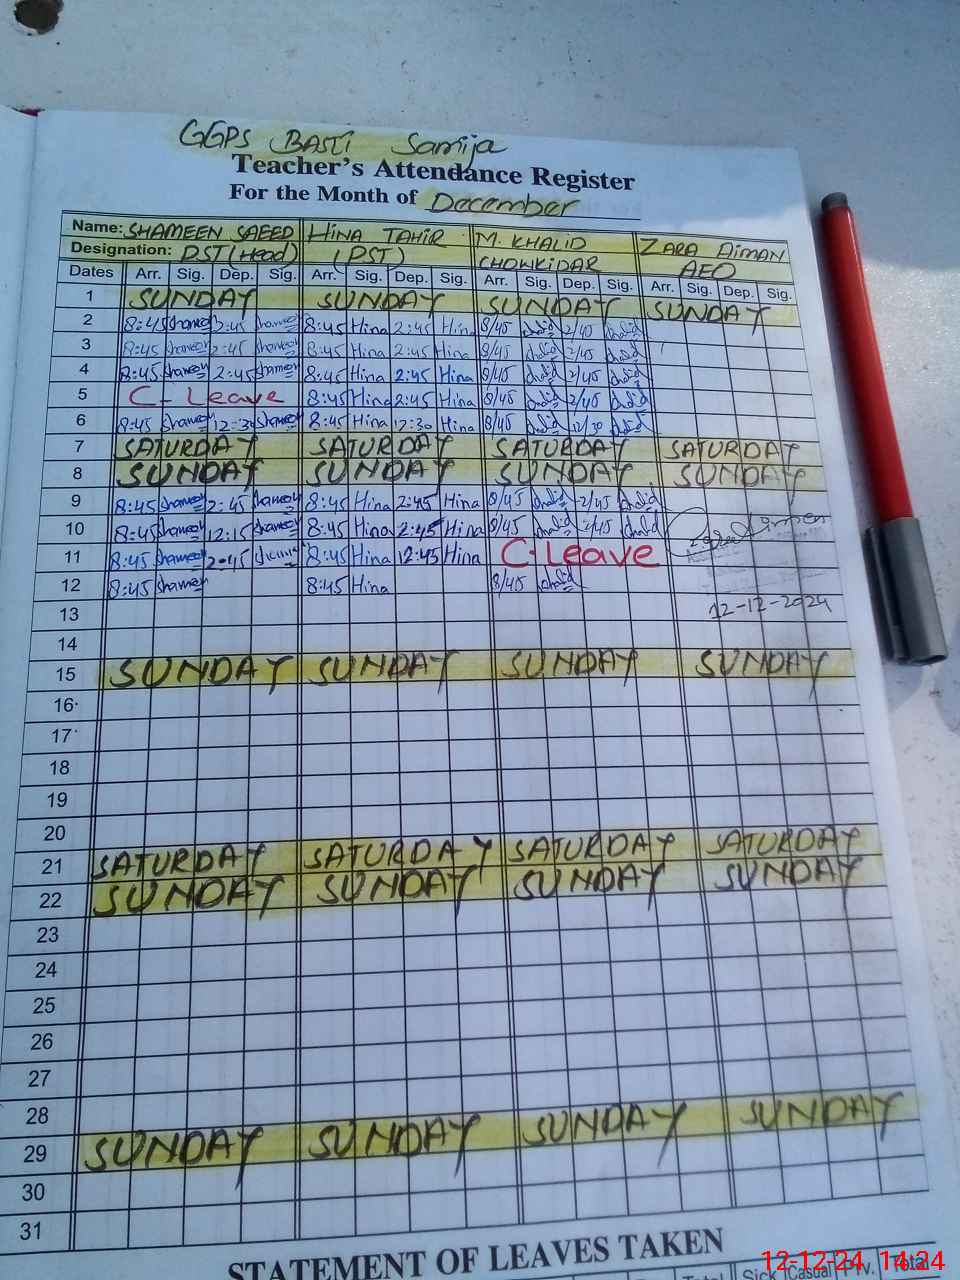 GGPS BASTI Samija
Teacher's Attendance Register
For the Month of December
Name: SHAMEEN SAEED HINA TAHIR M. KHALID ZARA AIMAN
Designation: PST (Head) (PST) CHOWKIDAR AEO
Dates Arr. Sig. Dep. Sig. Arr. Sig. Dep. Sig. Arr. Sig. Dep. Sig. Arr. Sig. Dep. Sig.
1 SUNDAY SUNDAY SUNDAY SUNDAY
2 8:45 Shameen 2:45 Shameen 8:45 Hina 2:45 Hina 8/45 Khalid 2/45 Khalid
3 8:45 Shameen 2:45 Shameen 8:45 Hina 2:45 Hina 8/45 Khalid 2/45 Khalid
4 8:45 Shameen 2:45 Shameen 8:45 Hina 2:45 Hina 8/45 Khalid 2/45 Khalid
5 C- Leave 8:45 Hina 2:45 Hina 8/45 Khalid 2/45 Khalid
6 8:45 Shameen 12:30 Shameen 8:45 Hina 12:30 Hina 8/45 Khalid 12/30 Khalid
7 SATURDAY SATURDAY SATURDAY SATURDAY
8 SUNDAY SUNDAY SUNDAY SUNDAY
9 8:45 Shameen 2:45 Shameen 8:45 Hina 2:45 Hina 8/45 Khalid 2/45 Khalid
10 8:45 Shameen 12:15 Shameen 8:45 Hina 2:45 Hina 8/45 Khalid 2/45 Khalid
11 8:45 Shameen 2:45 Shameen 8:45 Hina 12:45 Hina C-Leave
12 8:45 Shameen 8:45 Hina 8/45 Khalid
12-12-2024
13
14
15 SUNDAY SUNDAY SUNDAY SUNDAY
16
17
18
19
20
21 SATURDAY SATURDAY SATURDAY SATURDAY
22 SUNDAY SUNDAY SUNDAY SUNDAY
23
24
25
26
27
28
29 SUNDAY SUNDAY SUNDAY SUNDAY
30
31
STATEMENT OF LEAVES TAKEN
Total Sick Casual Total
12-12-24 14:24